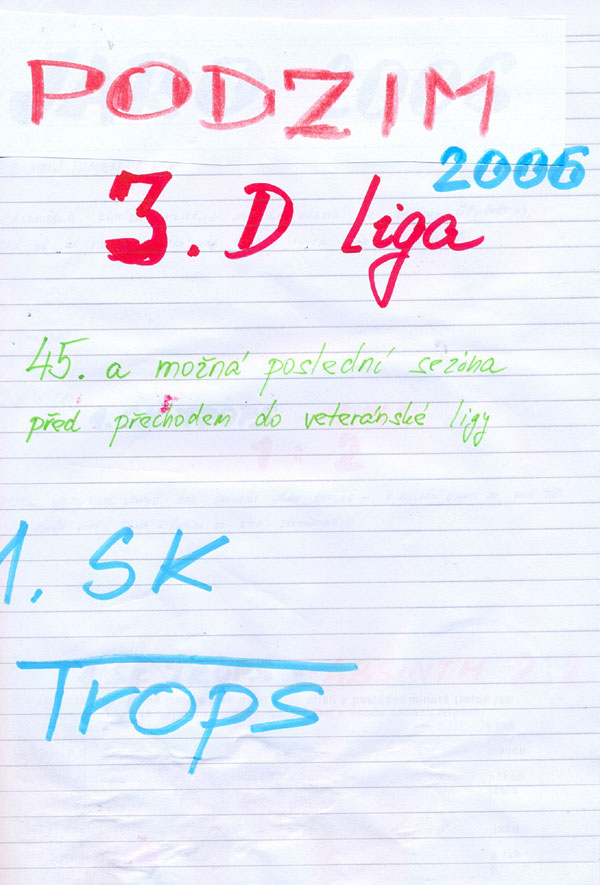 PODZIM
2006
3. D liga
45. a možná poslední sezóna
před přechodem do veteránské ligy
1 : 2
1. SK
Trops